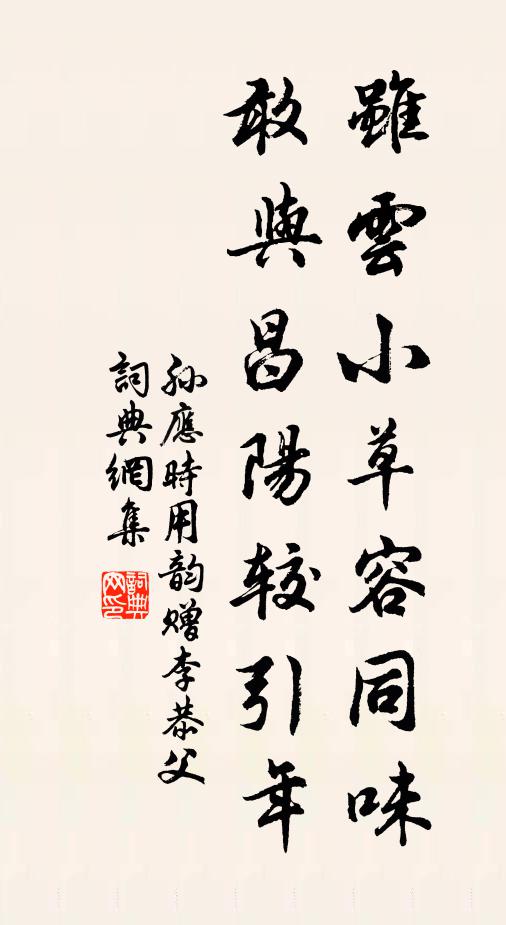 雖雲小草容同味
敢與昌陽較引年
孙應時用韵贈李恭父
詞典網集
詞典網印